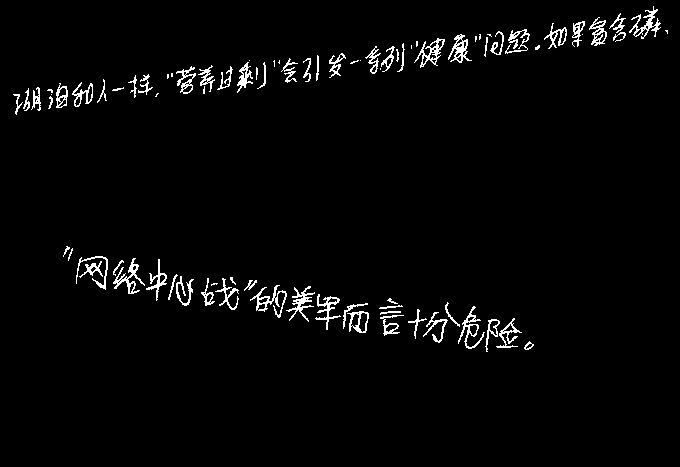 湖泊和人一样，“营养过剩”会引发一系列“健康”问题。如果富含磷、
“网络中心战”的美军而言十分危险。